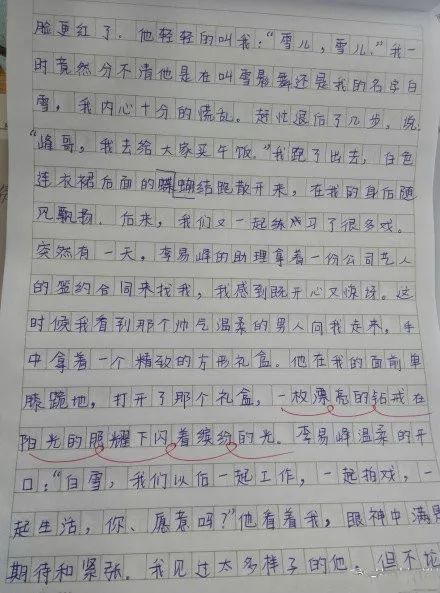 脸更红了。他轻轻的叫我：“雪儿，雪儿。”我一
时竟然分不清他是在叫雪影舞还是我的名字白
雪，我内心十分的慌乱。赶忙退后了几步，说
“峰哥，我去给大家买午饭。”我跑了出去，白色
连衣裙后面的蝶蝴结跑散开来，在我的身后随
风飘扬。后来，我们又一起练习了很多戏。
突然有一天，李易峰的助理拿着一份公司艺人
的签约合同来找我，我感到既开心又惊讶。这
时候我看到那个帅气温柔的男人向我走来，手
中拿着一个精致的方形礼盒。他在我的面前单
膝跪地，打开了那个礼盒，一枚漂亮的钻戒在
阳光的照耀下闪着缤纷的光。李易峰温柔的开
口：“白雪，我们以后一起工作，一起拍戏，一
起生活，你、愿意吗？”他看着我，眼神中满是
期待和紧张。我见过太多样子的他。但不论